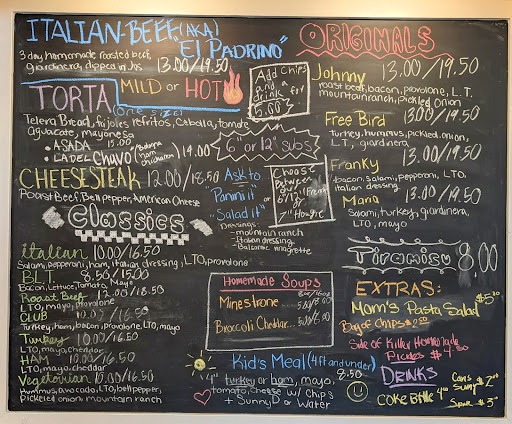 ITALIAN-BEEF, (AKA)
EL PADRINO"
3 day, homemade roasted beef,
giardinera, dipped in Jus 13.00/19.50
MILD or HOT
TORTA (one size)
Telera Bread, frijoles refritos, Cebolla, tomate,
aguacate, mayonesa
• ASADA 15.00
• LA DEL Chavo (Bologna ham chicharron) 14.00
CHEESESTEAK 12.00/18.50
Roast Beef, Bell pepper, American Cheese
Classics
italian 10.00/16.50
Salami, pepperoni, ham, italian dressing, LTO, provolone
BLT 8.50/15.00
Bacon, Lettuce, Tomato, Mayo
Roast Beef 12.00/18.50
LTO, mayo, provolone
CLUB 10.00/16.50
Turkey, ham, bacon, provolone, LTO, mayo
Turkey 10.00/16.50
LTO, mayo, cheddar
HAM 10.00/16.50
LTO, mayo, cheddar
Vegetarian 10.00/16.50
Hummus, avocado, LTO, bell pepper,
pickled onion, mountain ranch
Add Chips
and a
drink for
5.00
6" or 12" subs
Ask to
"Panini it"
or
"Salad it"
Dressings:
- mountain ranch
- Italian dressing
- Balsamic
Choose
Between
Hoagie
Homemade Soups
Minestrone
Broccoli Cheddar
Kid's Meal (4ft and under)
8.50
4" turkey or ham, mayo,
tomato, cheese w/ Chips
+ SunnyD or Water
ORIGINALS
Johnny 13.00/19.50
roast beef, bacon, provolone, L.T.
mountain ranch, Pickled onion
Free Bird 13.00/19.50
Turkey, hummus, pickled onion,
L.T, giardinera
Franky 13.00/19.50
bacon, salami, pepperoni, LTO,
italian dressing
Mario 13.00/19.50
Salami, turkey, giardinera,
LTO, mayo
Tiramisu 8.00
EXTRAS:
Mom's Pasta Salad
Bag of Chips
Side of Killer Homemade
Pickles
DRINKS
Coke Bttle
Cans